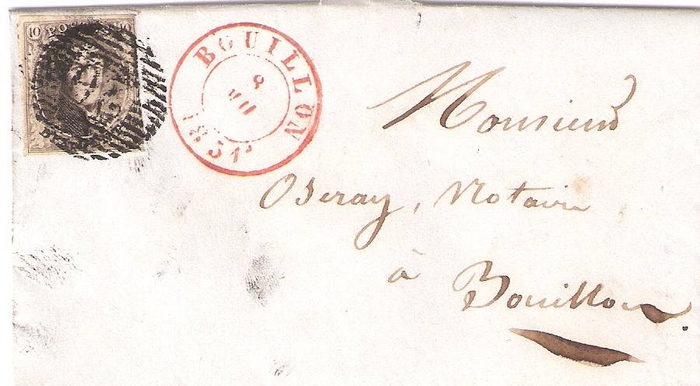 10 POSTES 10
BOUILLON
8
1851
Monsieur
Oseray, Notaire
à
Bouillon.